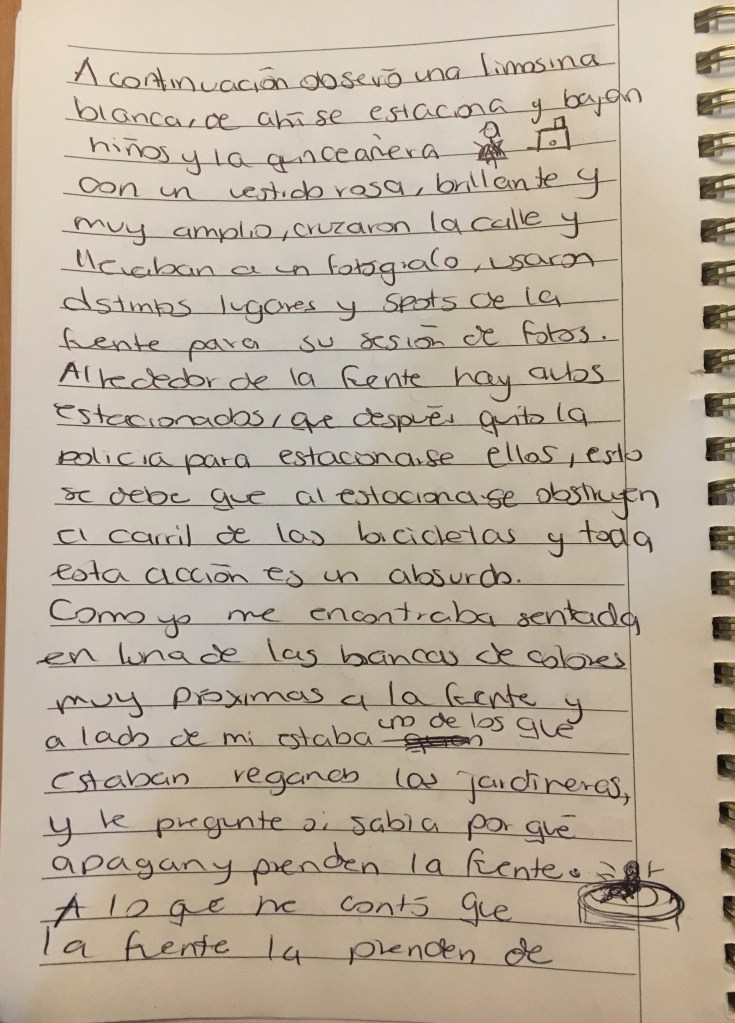 A continuación observó una limosina
blanca, de ahí se estaciona y bajan
niños y la quinceañera
con un vestido rosa, brillante y
muy amplio, cruzaron la calle y
llevaban a un fotógrafo, usaron
distintos lugares y spots de la
fuente para su sesión de fotos.
Alrededor de la fuente hay autos
estacionados, que después quito la
policia para estacionarse ellos, esto
se debe que al estacionarse obstruyen
el carril de las bicicletas y toda
esta acción es un absurdo.
Como yo me encontraba sentada
en una de las bancas de colores
muy próximas a la fuente y
a lado de mi estaba uno de los que
estaban regando las jardineras,
y le pregunte si sabía por qué
apagan y prenden la fuente.
A lo que me contó que
la fuente la prenden de